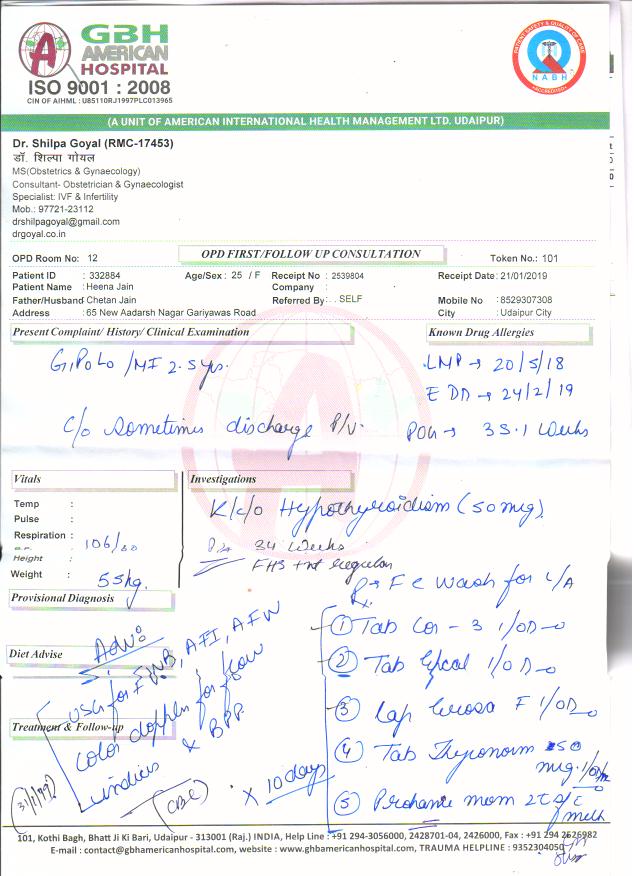 GBH
AMERICAN
HOSPITAL
ISO 9001 : 2008
CIN OF AIHML : U85110RJ1997PLC013965
PATIENT SAFETY & QUALITY OF CARE
NABH
ACCREDITED
(A UNIT OF AMERICAN INTERNATIONAL HEALTH MANAGEMENT LTD. UDAIPUR)
Dr. Shilpa Goyal (RMC-17453)
डॉ. शिल्पा गोयल
MS(Obstetrics & Gynaecology)
Consultant- Obstetrician & Gynaecologist
Specialist: IVF & Infertility
Mob.: 97721-23112
drshilpagoyal@gmail.com
drgoyal.co.in
OPD Room No: 12 OPD FIRST/FOLLOW UP CONSULTATION Token No.: 101
Patient ID : 332884 Age/Sex : 25 / F Receipt No : 2539804 Receipt Date: 21/01/2019
Patient Name : Heena Jain Company :
Father/Husband Chetan Jain Referred By : SELF Mobile No : 8529307308
Address : 65 New Aadarsh Nagar Gariyawas Road City : Udaipur City
Present Complaint/ History/ Clinical Examination Known Drug Allergies
G1P0L0 /MF 2.5 yrs. LMP → 20/5/18
EDD → 24/2/19
c/o sometimes discharge P/V. POG → 35.1 weeks
Vitals Investigations
Temp :
Pulse :
Respiration : 106/60
B.P. :
Height :
Weight : 55kg.
K/c/o Hypothyroidism (50 mcg)
P/A 34 weeks
FHS +nt regular
Provisional Diagnosis
Rx
V wash for L/A
① Tab Cor - 3 1/OD
② Tab 1/OD
③ Cap F 1/OD
④ Tab Thyronorm 50 mcg 1/OD
⑤ Prohance mom 2T milk
Diet Advise
Adv:
USG for FWB, AFI, AFW
color doppler for flow
indices & BPP
Treatment & Follow-up
(CBC)
x 10 days
101, Kothi Bagh, Bhatt Ji Ki Bari, Udaipur - 313001 (Raj.) INDIA, Help Line : +91 294-3056000, 2428701-04, 2426000, Fax : +91 294 2526982
E-mail : contact@gbhamericanhospital.com, website : www.gbhamericanhospital.com, TRAUMA HELPLINE : 9352304050